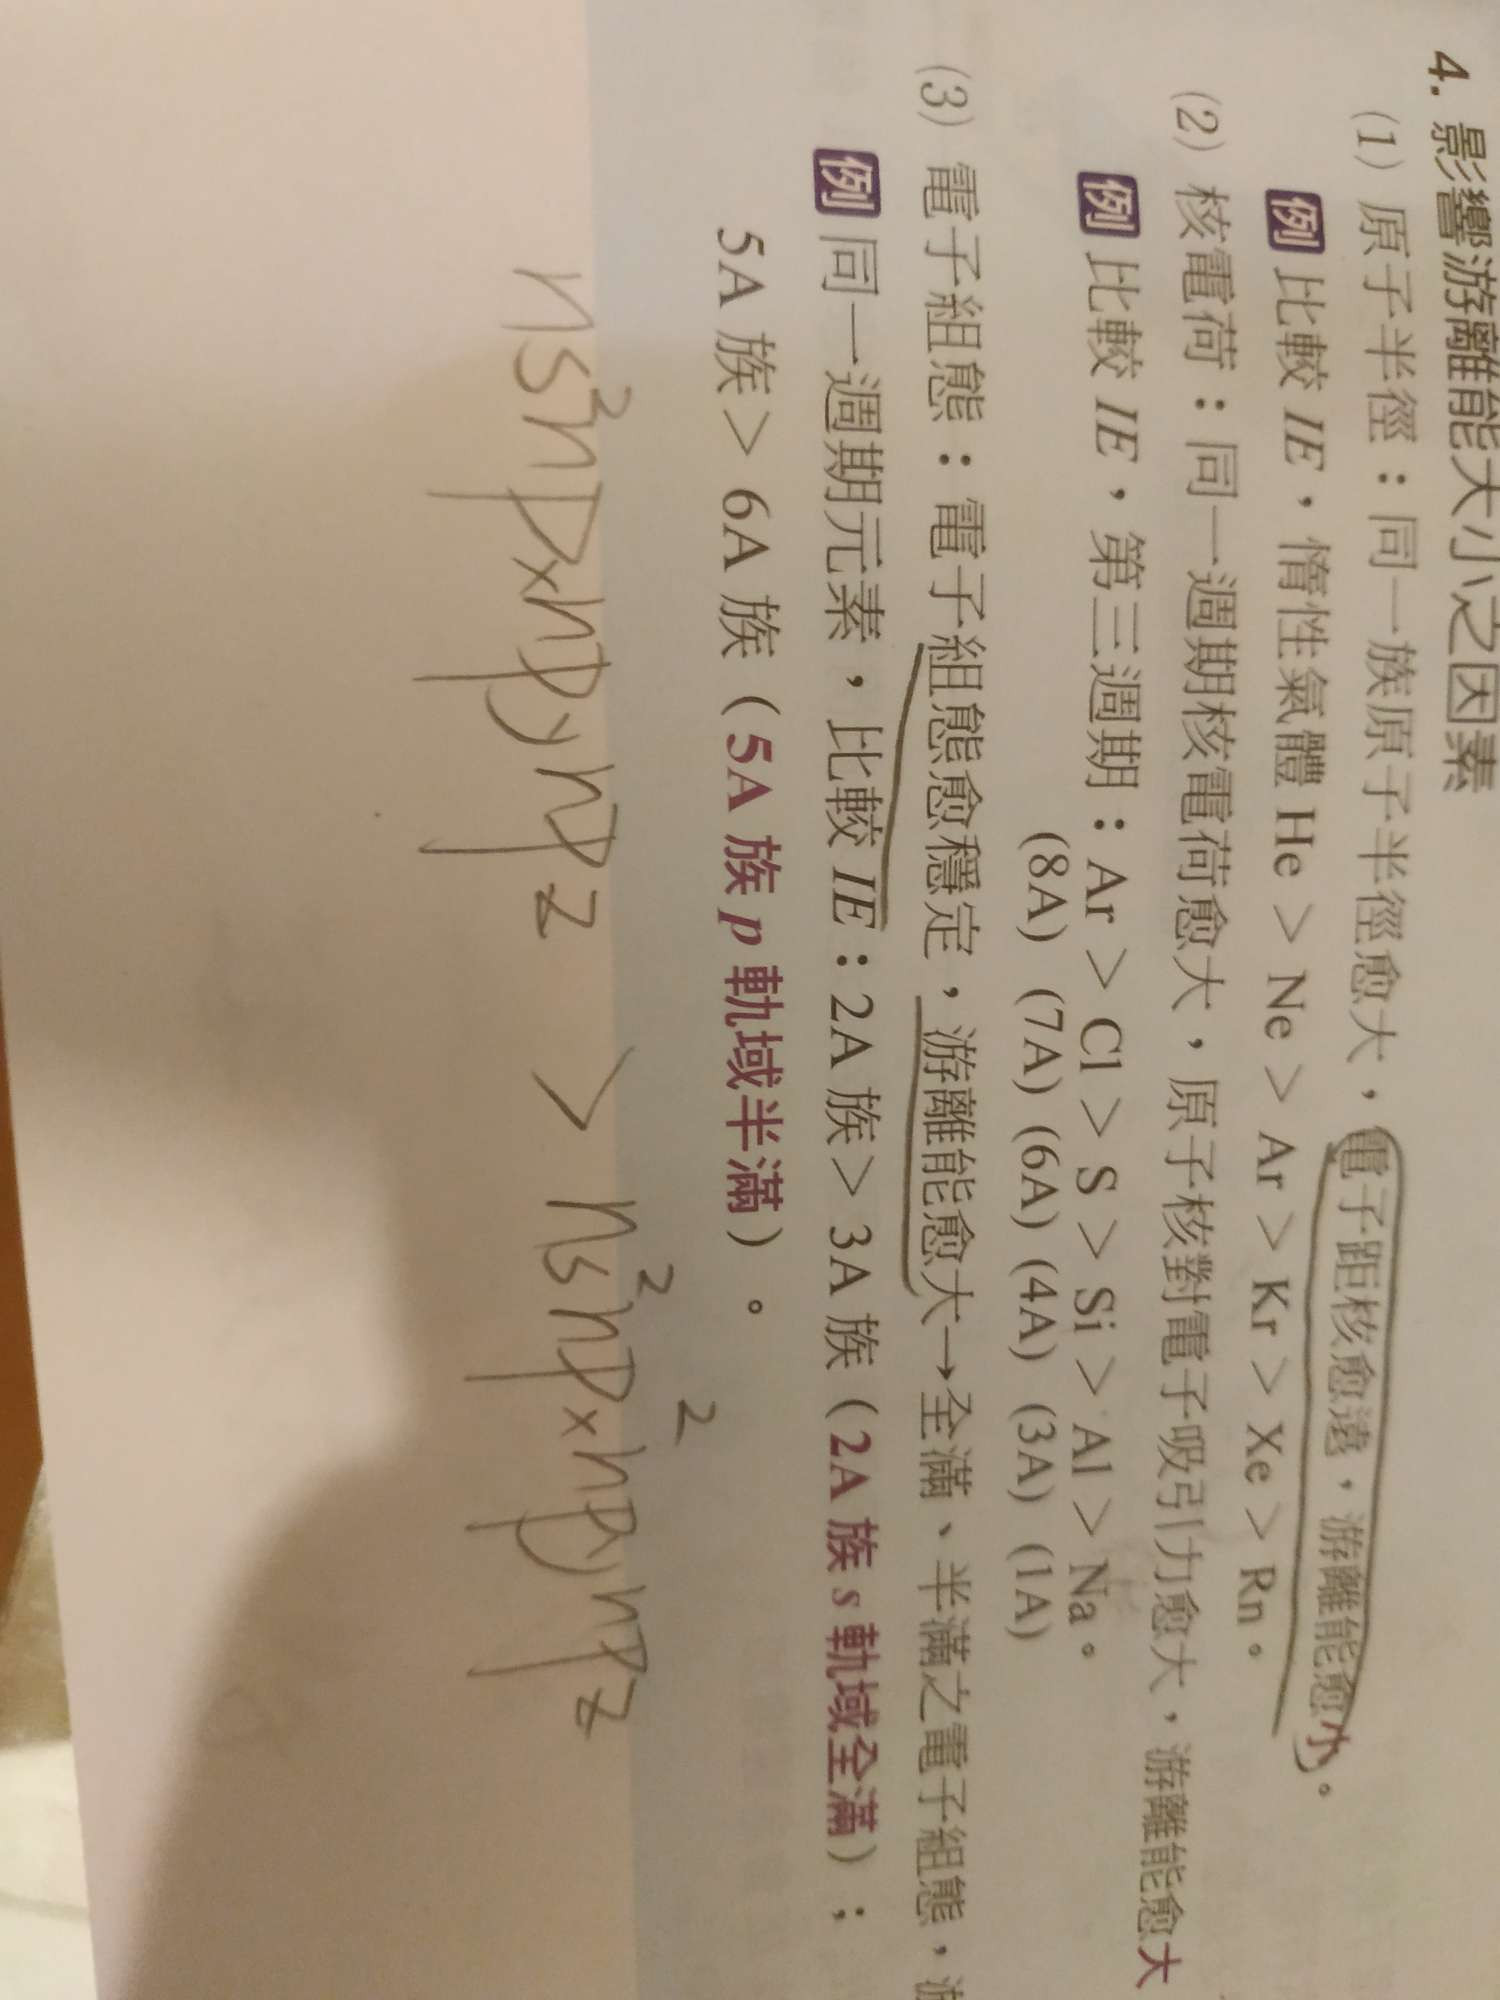 4. 影響游離能大小之因素
(1) 原子半徑：同一族原子半徑愈大，電子距核愈遠，游離能愈小。
例 比較 IE，惰性氣體 He > Ne > Ar > Kr > Xe > Rn。
(2) 核電荷：同一週期核電荷愈大，原子核對電子吸引力愈大，游離能愈大
例 比較 IE，第三週期：Ar > Cl > S > Si > Al > Na。
(8A) (7A) (6A) (4A) (3A) (1A)
(3) 電子組態：電子組態愈穩定，游離能愈大→全滿、半滿之電子組態，游
例 同一週期元素，比較 IE：2A 族> 3A 族（2A 族 s 軌域全滿）；
5A 族> 6A 族（5A 族 p 軌域半滿）。
ns²npₓnpynpz > ns²npₓ²npynpz